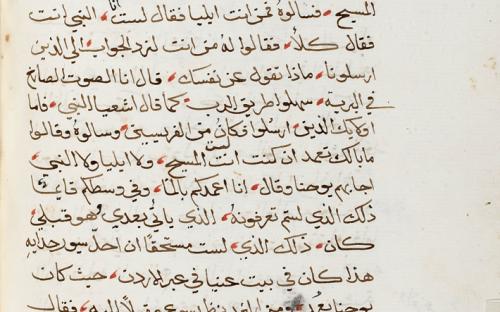 المسيح فسالوه فمن انت ايليا فقال لست انا النبي انت
فقال كلا فقالوا له من انت لنرد الجواب الي الذين
ارسلونا ماذا تقول عن نفسك قال انا الصوت الصارخ
في البرية سهلوا طريق الرب كما قال اشعيا النبي فاما
اوليك الذين ارسلوا فكانوا من الفريسيين وسالوه وقالوا
ما بالك تعمد ان كنت لست انت المسيح ولا ايليا ولا النبي
اجابهم يوحنا وقال انا اعمدكم بالما وفي وسطكم قايم
ذلك الذي لستم تعرفونه الذي ياتي بعدي هو قبلي
كان ذلك الذي لست مستحقا ان احل سيور حذايه
هذا كان في بيت عنيا في عبر الاردن حيث كان
يوحنا يعمد